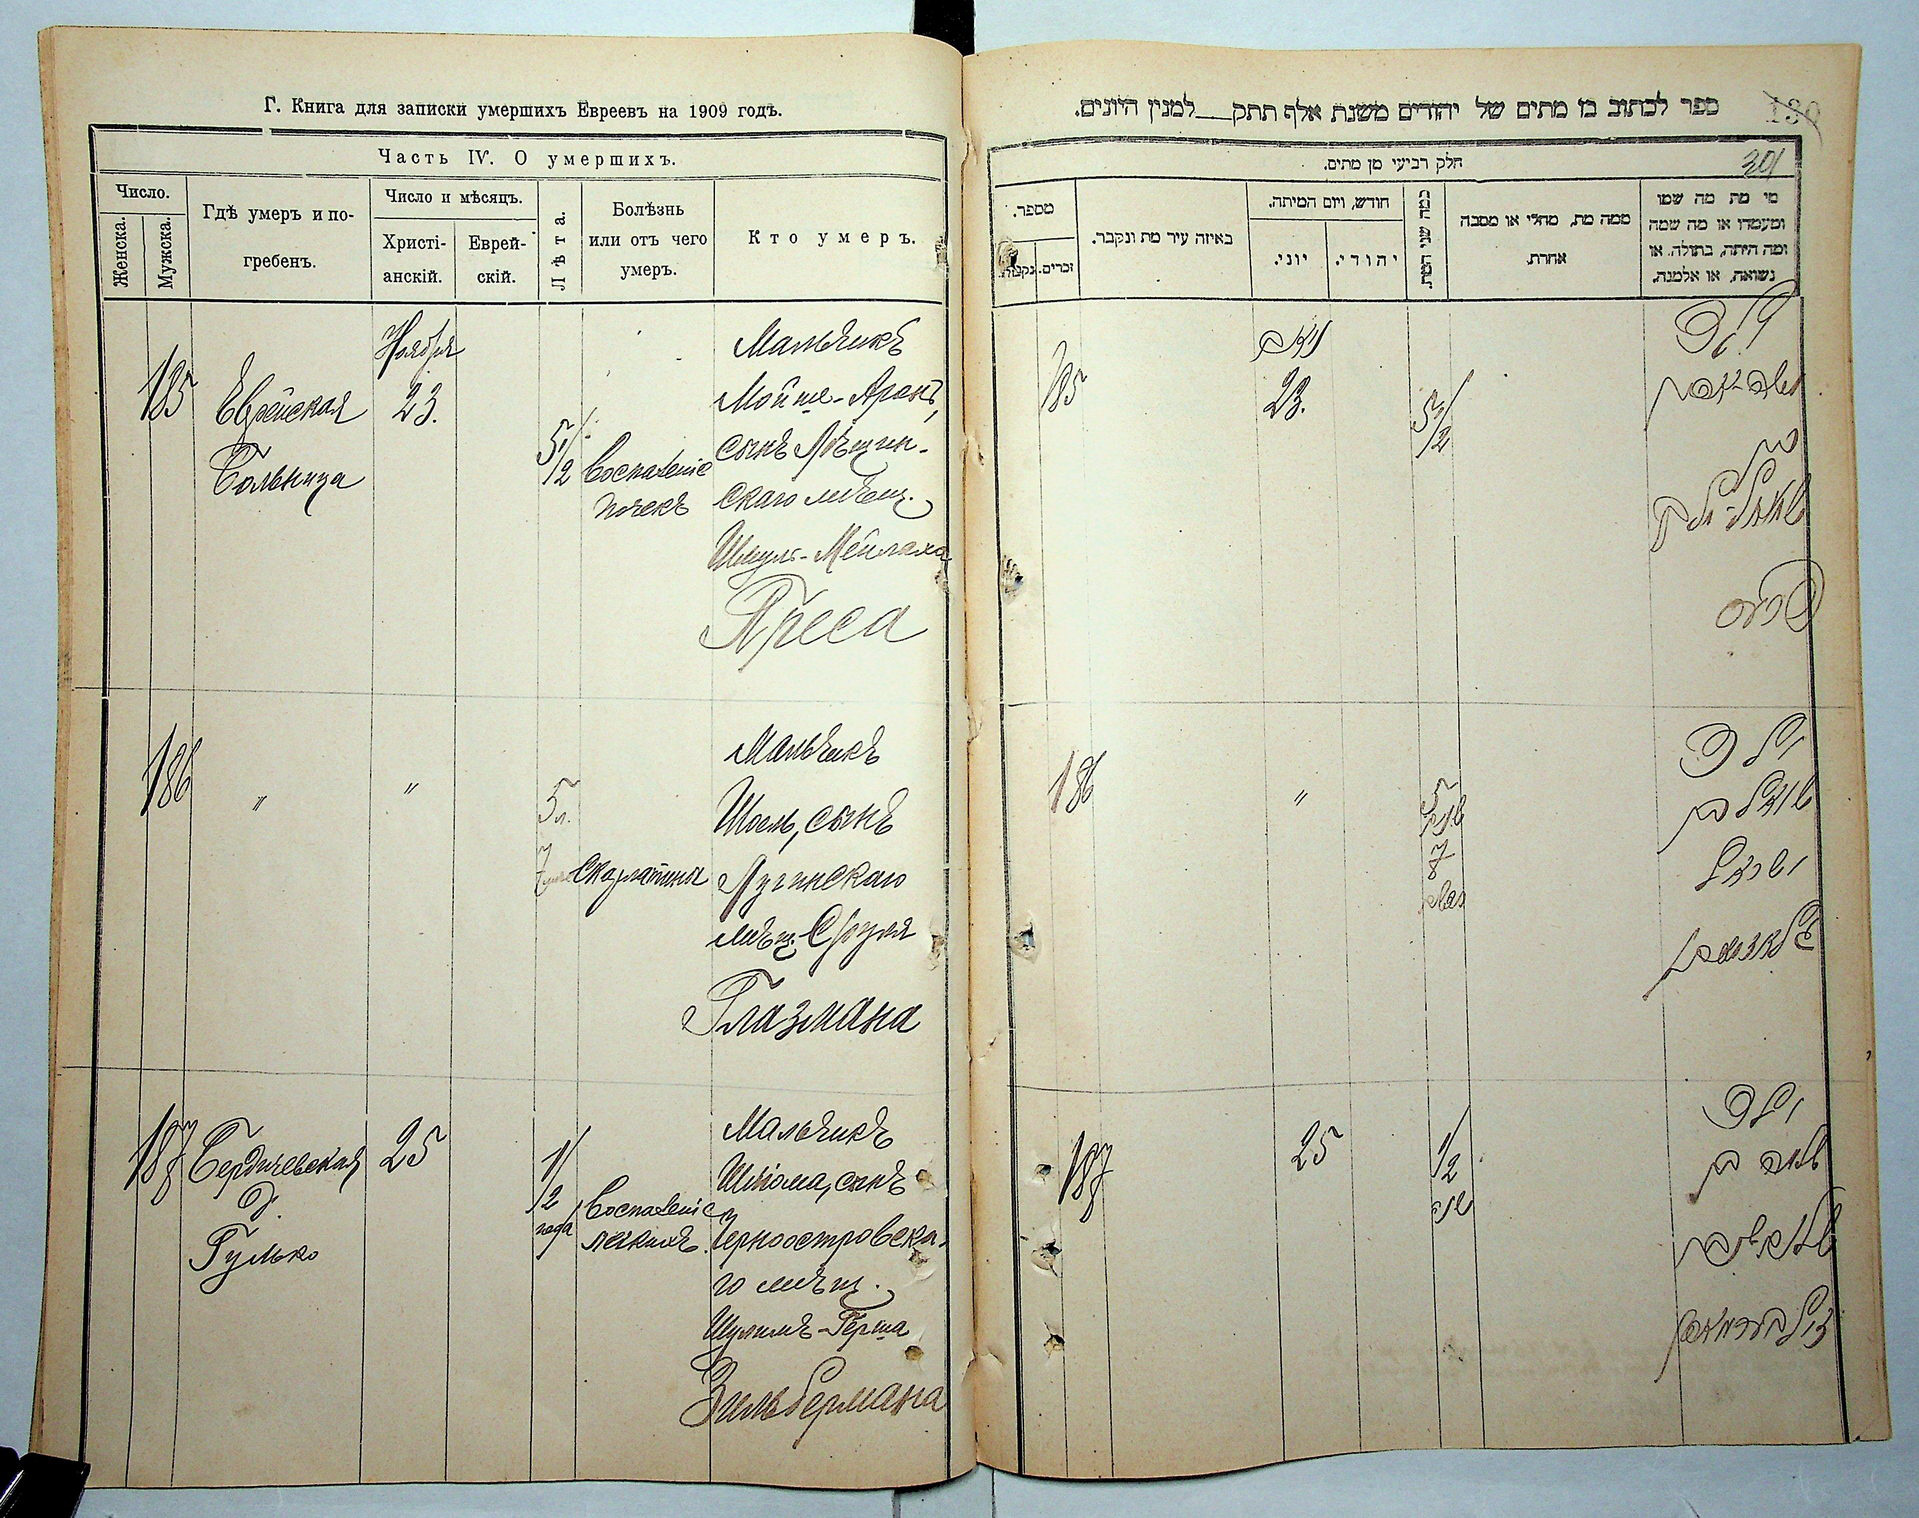 Г. Книга для записки умершихъ Евреевъ на 1909 годъ.
Часть IV. О умершихъ.
Число.
Женска.
Мужска.
Гдѣ умеръ и по-
гребенъ.
Число и мѣсяцъ.
Христі-
анскій.
Еврей-
скій.
Лѣта.
Болѣзнь
или отъ чего
умеръ.
Кто умеръ.
185
Еврейская
Больница
Ноября
23.
5 1/2
Воспаленіе
почекъ
Мальчикъ
Мойше-Аронъ,
сынъ
скаго мѣщ.
Шмуль-Мейлаха
186
"
"
5 л.
7
Скарлатина
Мальчикъ
Шоель, сынъ
Лугинскаго
мѣщ. Сруля
Глазмана
187
Бердичевская
д.
Гулько
25
1/2
года
Воспаленіе
легкихъ.
Мальчикъ
Шлома, сынъ
Черноостровска-
го мѣщ.
Шулимъ-Герша
Зильбермана
ספר לכתוב בו מתים של יהודים משנת אלף תתק___למנין היונים.
130
301
חלק רביעי מן מתים.
מספר.
נקבות.
זכרים.
באיזה עיר מת ונקבר.
חודש, ויום המיתה.
יוני.
יהודי.
כמה שני המת.
ממה מת, מחלי או מסבה
אחרת.
מי מת מה שמו
ומעמדו או מה שמה
ומה היתה, בתולה, או
נשואה, או אלמנה.
185
23.
5 1/2
ילד
משה אהרן
בן
186
"
5
שנים
7
ילד
שואל בן
ישראל
גלאזמאן
187
25
1/2
שנה
ילד
שלמה בן
זילבערמאן